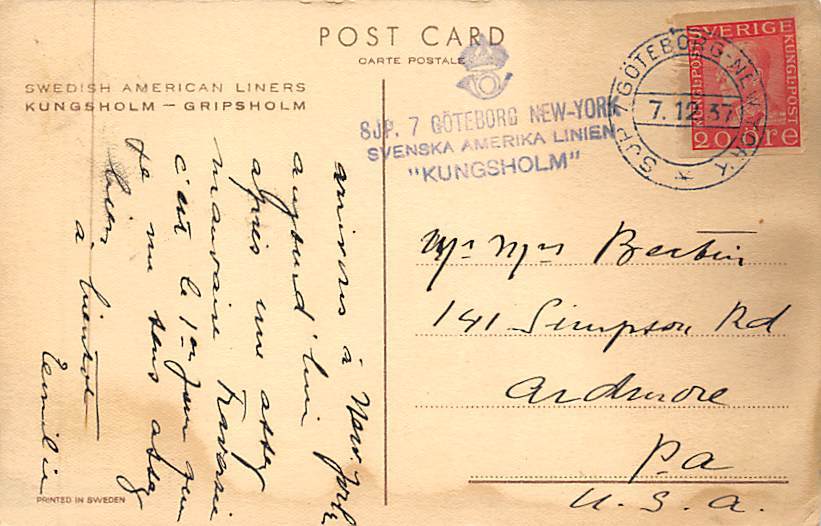 POST CARD
CARTE POSTALE
SWEDISH AMERICAN LINERS
KUNGSHOLM — GRIPSHOLM
SJP. 7 GÖTEBORG NEW-YORK
SVENSKA AMERIKA LINIEN
"KUNGSHOLM"
SJP. 7 GÖTEBORG-NEW-YORK
7.12.37
SVERIGE
KUNGL: POST
KUNGL: POST
20 ÖRE
arrivons à New. York
aujourd'hui
après une assez
mauvaise traversée
c'est le 1er jour que
je me sens assez
bien
à bientôt
Emilie
Mr Mrs Bertin
141 Simpson Rd
Ardmore
Pa
U.S.A.
PRINTED IN SWEDEN